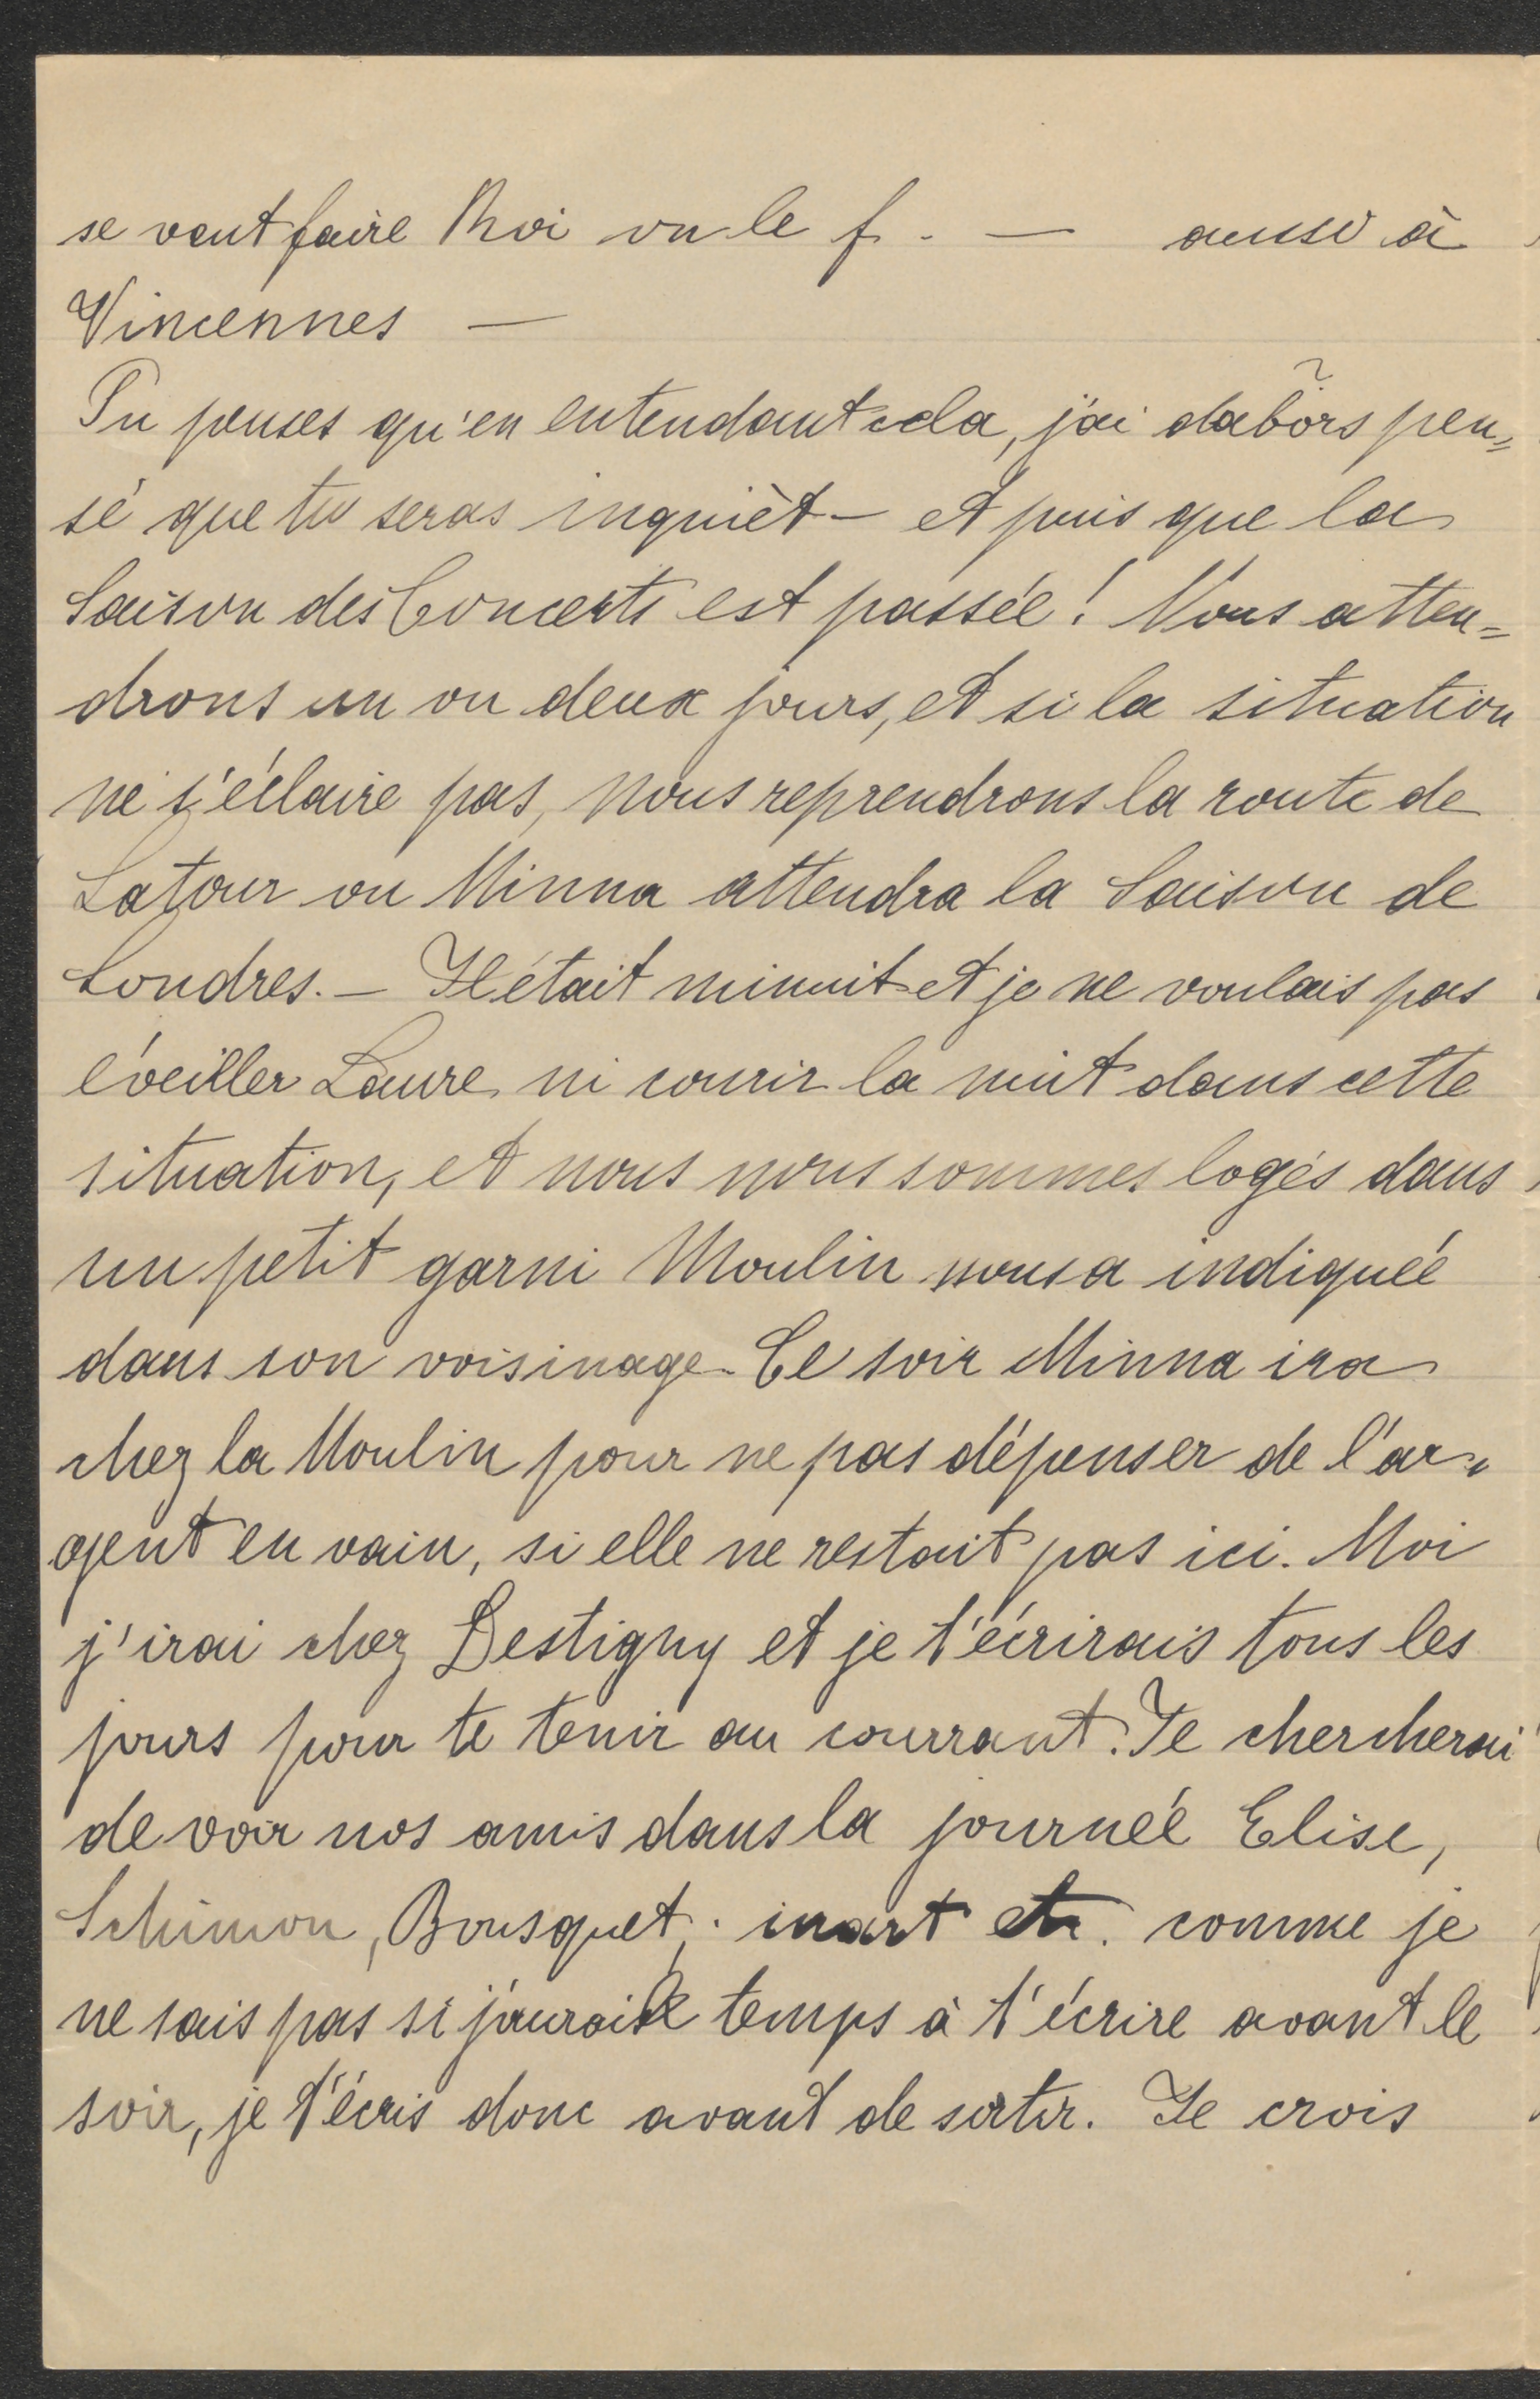 se veut faire Roi on le f . — aussi à
Vincennes —
Tu penses qu'en entendant cela, j'ai dabors pen=
sé que tu seras inquièt — et puis que la
Saison des Concerts est passée! Nous atten=
drons un ou deux jours, et si la situation
ne s'éclaire pas, nous reprendrons la route de
Latour ou Minna attendra la Saison de
Londres. — Il était minuit et je ne voulais pas
éveiller Laure ni courir la nuit dans cette
situation, et nous nous sommes logés dans
un petit garni Moulin nous a indiquée
dans son voisinage. Ce soir Minna ira
chez la Moulin pour ne pas dépenser de l'ar=
gent en vain, si elle ne restait pas ici. Moi
j'irai chez Destigny et je t'écrirais tous les
jours pour te tenir au courrant. Je chercherai
de voir nos amis dans la journée Elise,
Schimon, Bousquet, etc. comme je
ne sais pas si j'aurais le temps à t'écrire avant le
soir, je t'écris donc avant de sortir. Je crois